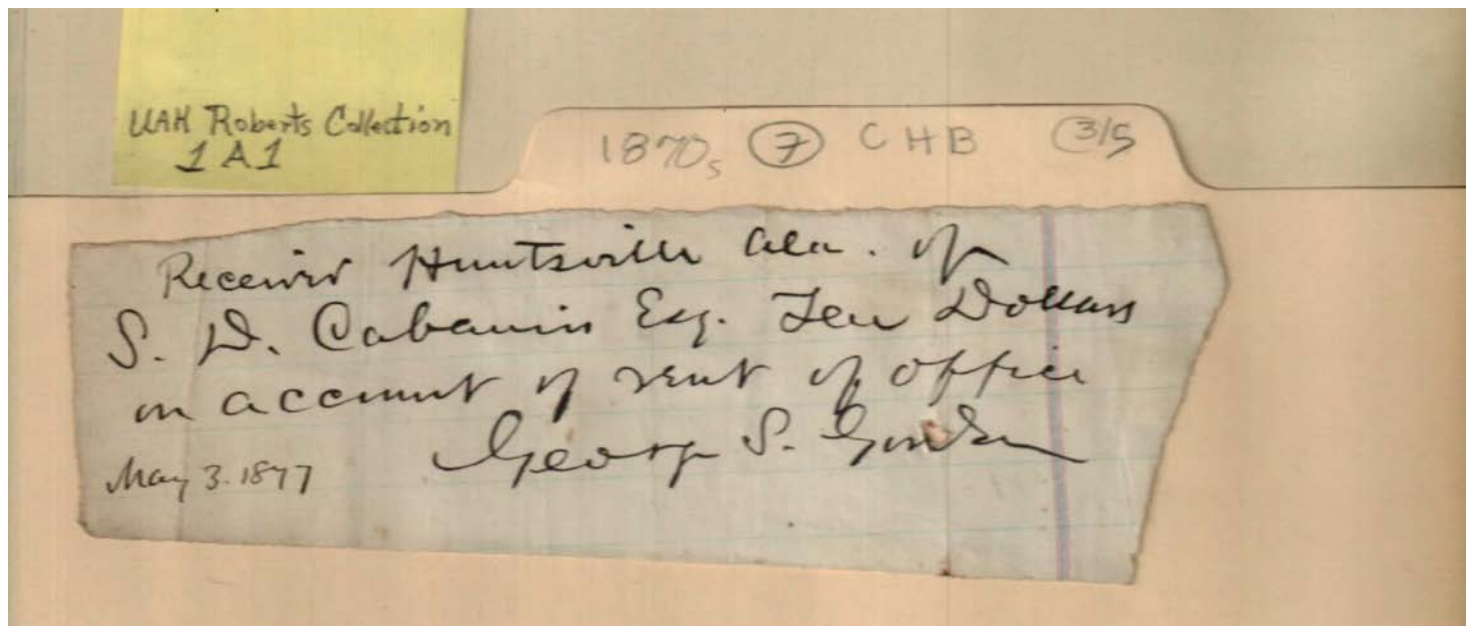 UAH Roberts Collection
1A1
1870s 7 CHB 3/5
Received Huntsville Ala. of
S. D. Cabaniss Esq. Ten Dollars
on account of rent of office
George S. Gordon
May 3. 1877